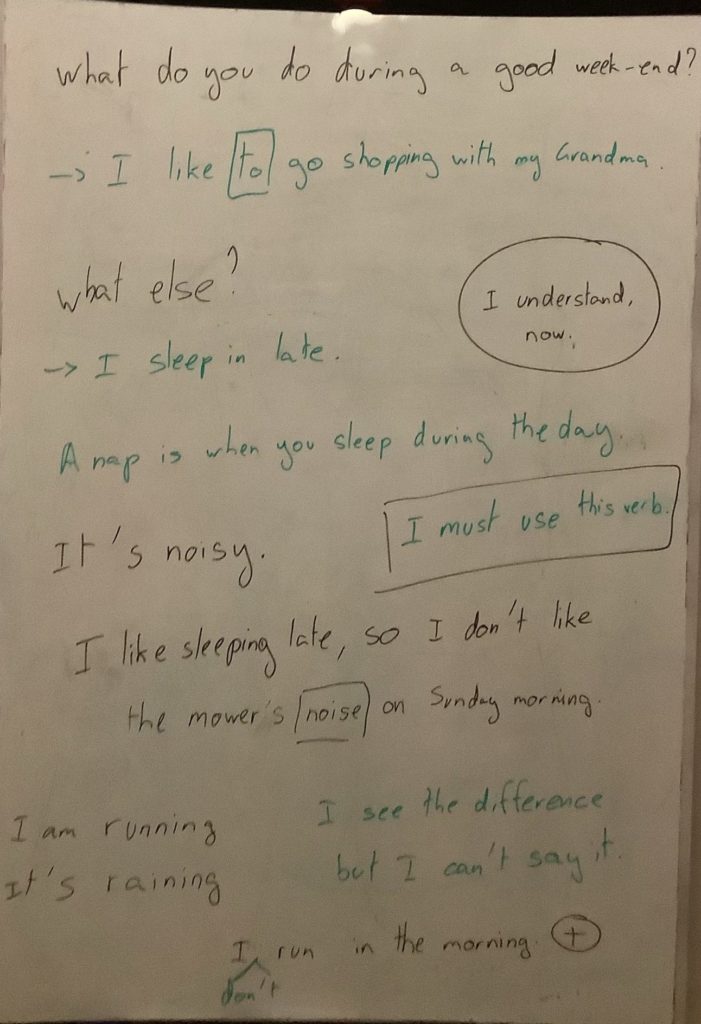 What do you do during a good week-end?
-> I like to go shopping with my Grandma.
What else?
I understand,
now.
-> I sleep in late.
A nap is when you sleep during the day.
I must use this verb.
It's noisy.
I like sleeping late, so I don't like
the mower's noise on Sunday morning.
I am running
It's raining
I see the difference
but I can't say it.
I run in the morning. +
don't